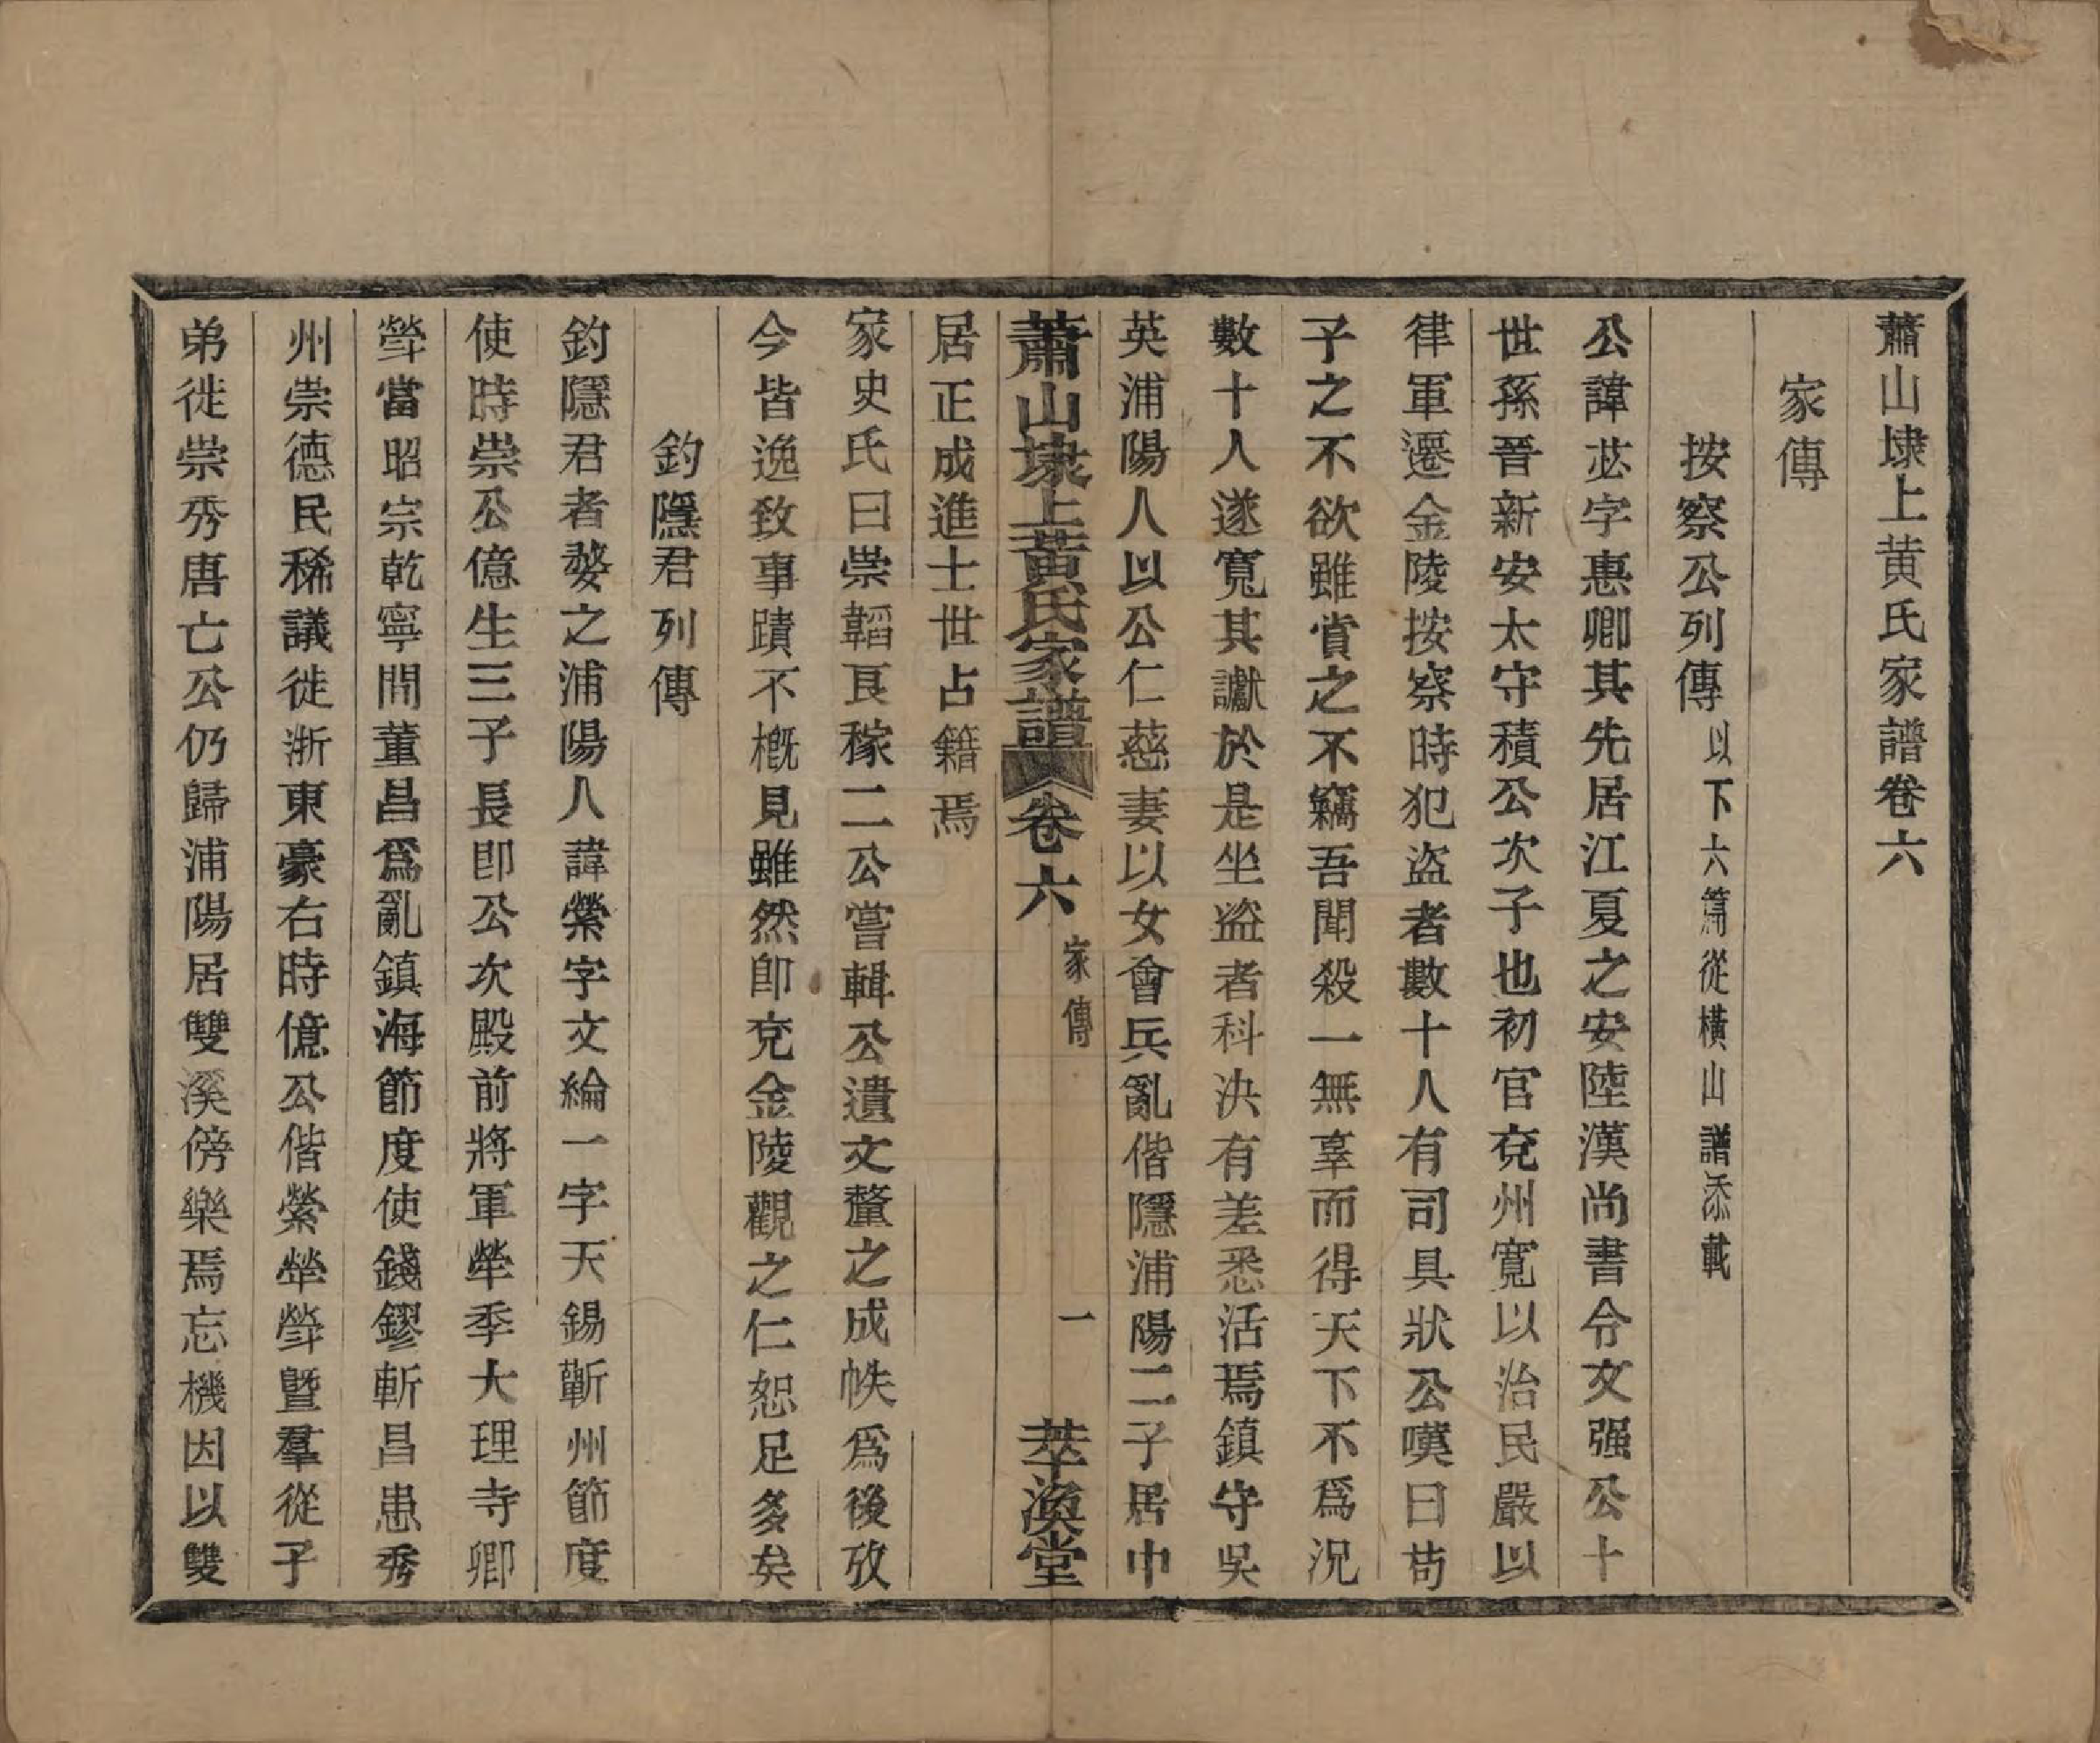 蕭山埭上黄氏家譜卷六
家傳
按察公列傳以下六篇從橫山譜添載
公諱苾字惠卿其先居江夏之安陸漢尚書令文强公十
世孫晉新安太守積公次子也初官兗州寬以治民嚴以
律軍遷金陵按察時犯盜者數十人有司具狀公嘆曰苟
子之不欲雖賞之不竊吾聞殺一無辜而得天下不爲况
數十人遂寬其讞於是坐盜者科決有差悉活焉鎮守吳
英浦陽人以公仁慈妻以女會兵亂偕隱浦陽二子居中
蕭山埭上黃氏家譜卷六 家傳 一 萃渙堂
居正成進士世占籍焉
家史氏曰崇韜艮稼二公嘗輯公遺文釐之成帙爲後攷
今皆逸致事蹟不概見雖然卽兗金陵觀之仁恕足多矣
釣隱君列傳
釣隱君者婺之浦陽人諱縈字文綸一字天錫蘄州節度
使時崇公億生三子長卽公次殿前將軍犖季大理寺卿
塋當昭宗乾寧間董昌爲亂鎮海節度使錢鏐斬昌患秀
州崇德民稀議徙浙東豪右時億公偕縈犖塋曁羣從子
弟徙崇秀唐亡公仍歸浦陽居雙溪傍樂焉忘機因以雙